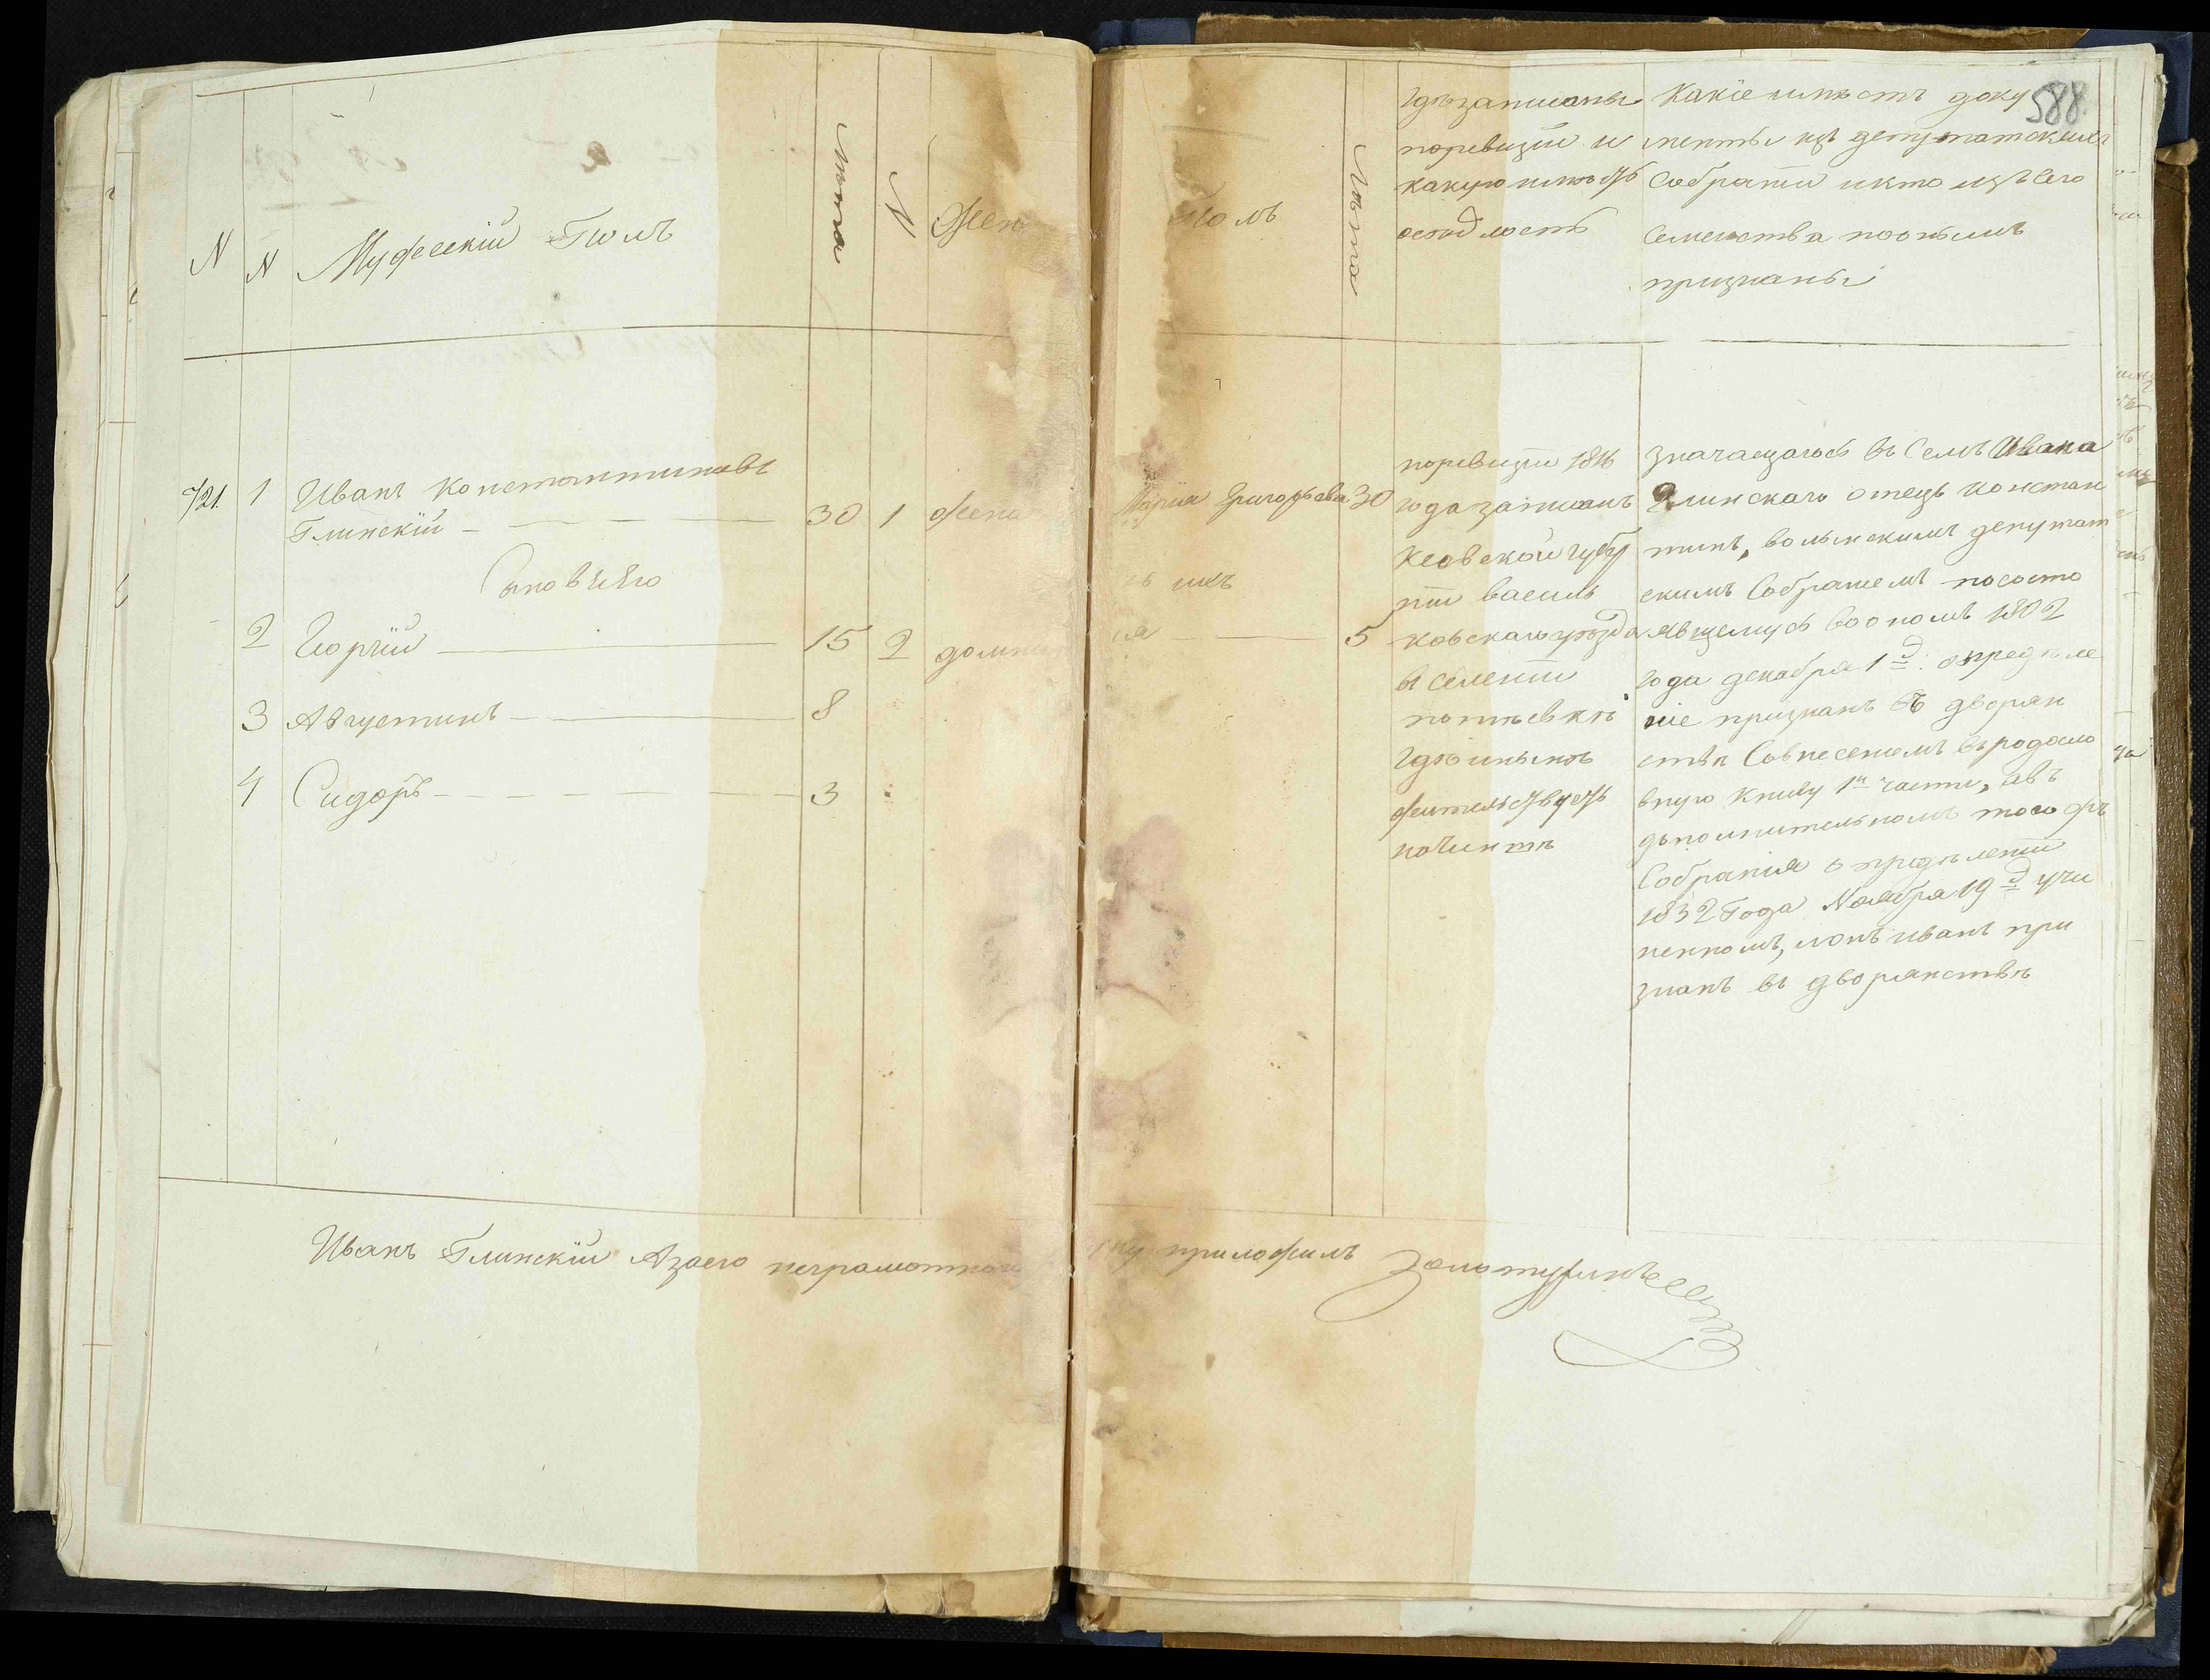 588
N N Мужескій Полъ Лѣта N Жен
Полъ Лѣта
гдѣ записаны
поревизіи и
какую имѣютъ
осѣдлость
Какіе имѣетъ доку
менты изъ депутатскихъ
Собраній икто изъ сего
Семейства по онымъ
признаны
721. 1 Иванъ Константиновъ
Глинскій 30 1 жена Марія Григорьева 30
Сыновья Его
ихъ
2 Георгій 15 2 5
3 Августинъ 8
4 Сидоръ 3
поревизіи 1816
года записанъ
Кіевской губер
ніи василь
ковскаго уѣзда
въ селеніи
гдѣ и нынѣ
жительствуетъ
Значащагося въ Семъ Ивана
Глинскаго отецъ Констан
тинъ, волынскимъ депутат
скимъ Собраніемъ пососто
явшемуся въ ономъ 1802
года декабря 1 д. опредѣле
ніе признанъ въ дворян
ствѣ Совнесеніемъ въ родосло
вную Книгу 1й части, а въ
дополнительномъ того жъ
Собранія опредѣленіи
1832 Года Ноября 19 д учи
ненномъ, и онъ иванъ при
знанъ въ дворянствѣ
Иванъ Глинскій Азаего неграмотнаго
ку приложилъ